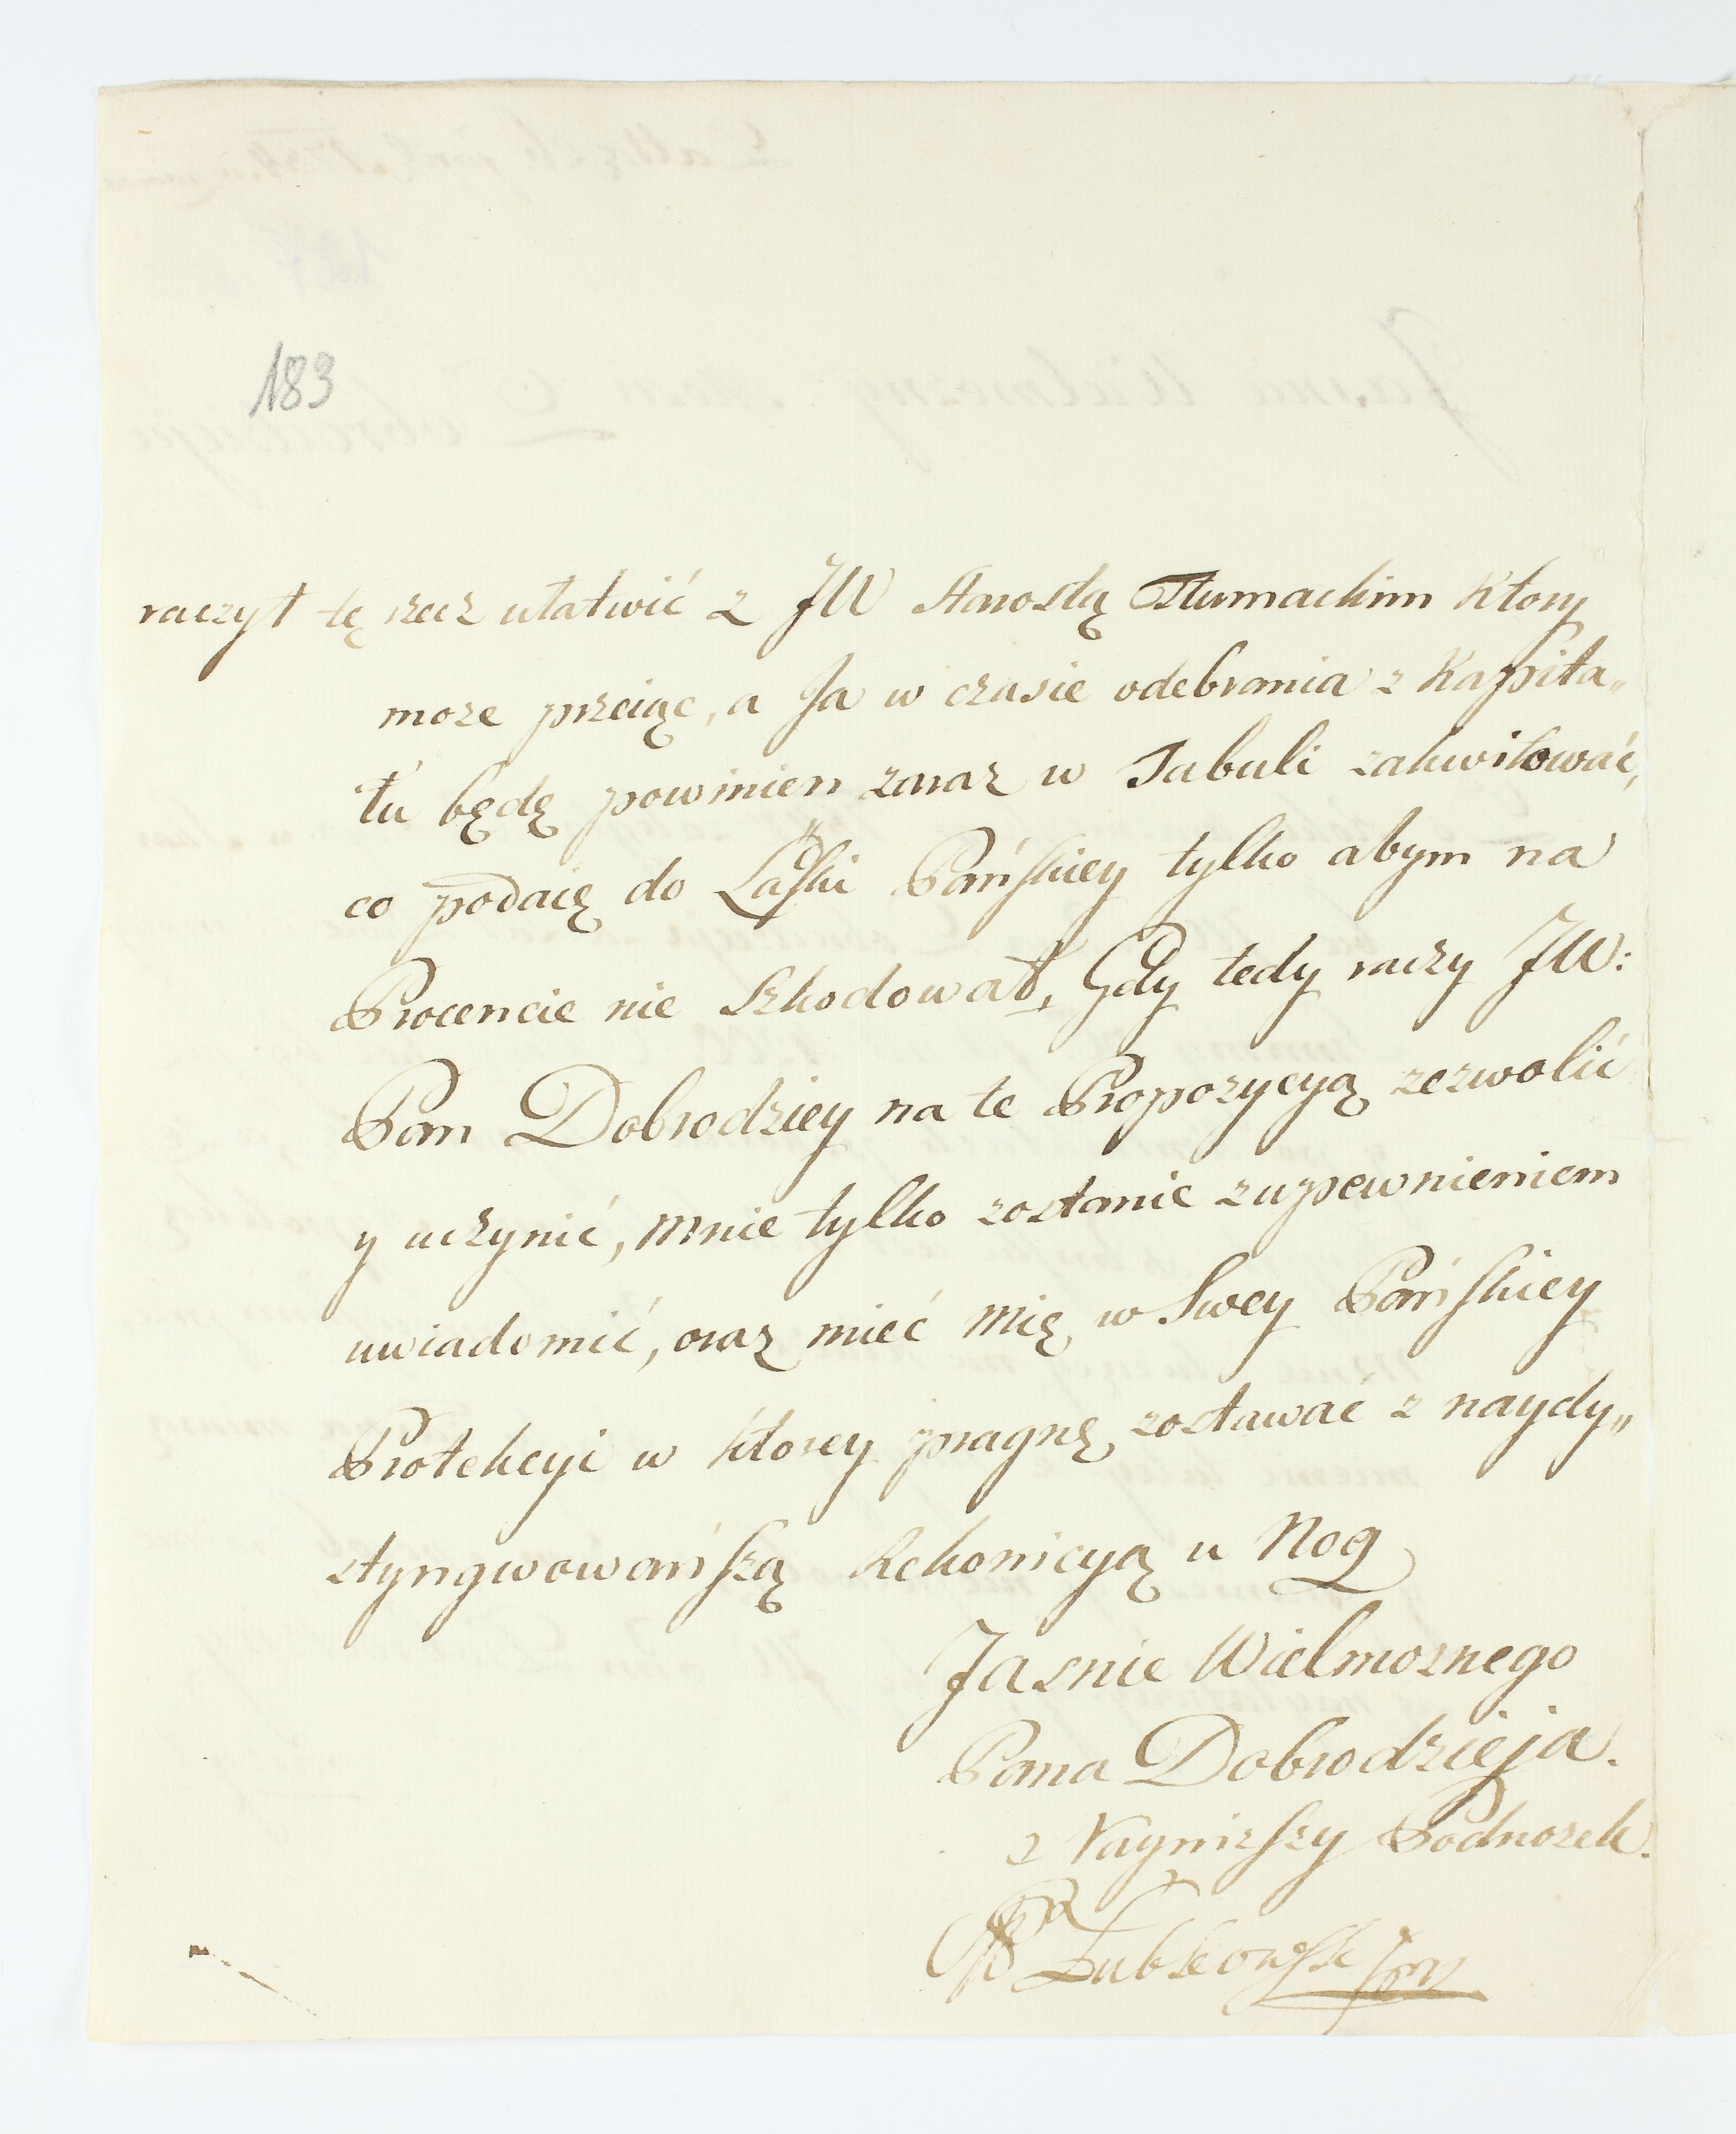 183
raczył tę rzecz ułatwić z JW Starostą Tłumackim Ktory
moze przeiąc, a Ja w czasie odebrania z Kapita„
łu będę powinien zaraz w Tabuli zakwitować,
co podaię do Łaski Pańskiey tylko abym na
Procencie nie szkodował, Gdy tedy raczy JW:
Pan Dobrodziey na te Propozycyą zezwolić
y uczynić, mnie tylko zostanie zupewnieniem
uwiadomić, oraz mieć mię w Swey Pańskiey
Protekcyi w ktorey pragnę zostawać z naydy„
styngwowańszą Rekonicyą u Nog
Jasnie Wielmoznego
Pana Dobrodzieja.
Naynizszy Podnozek.